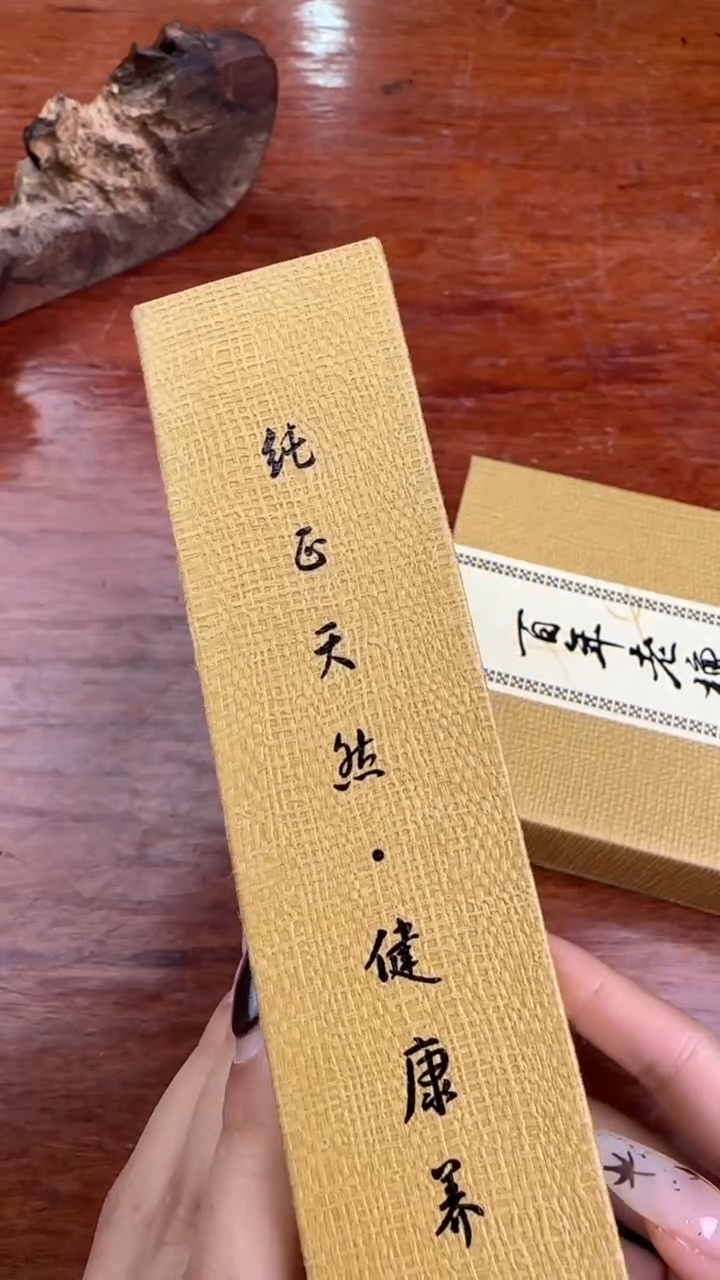 纯正天然·健康养
百年老